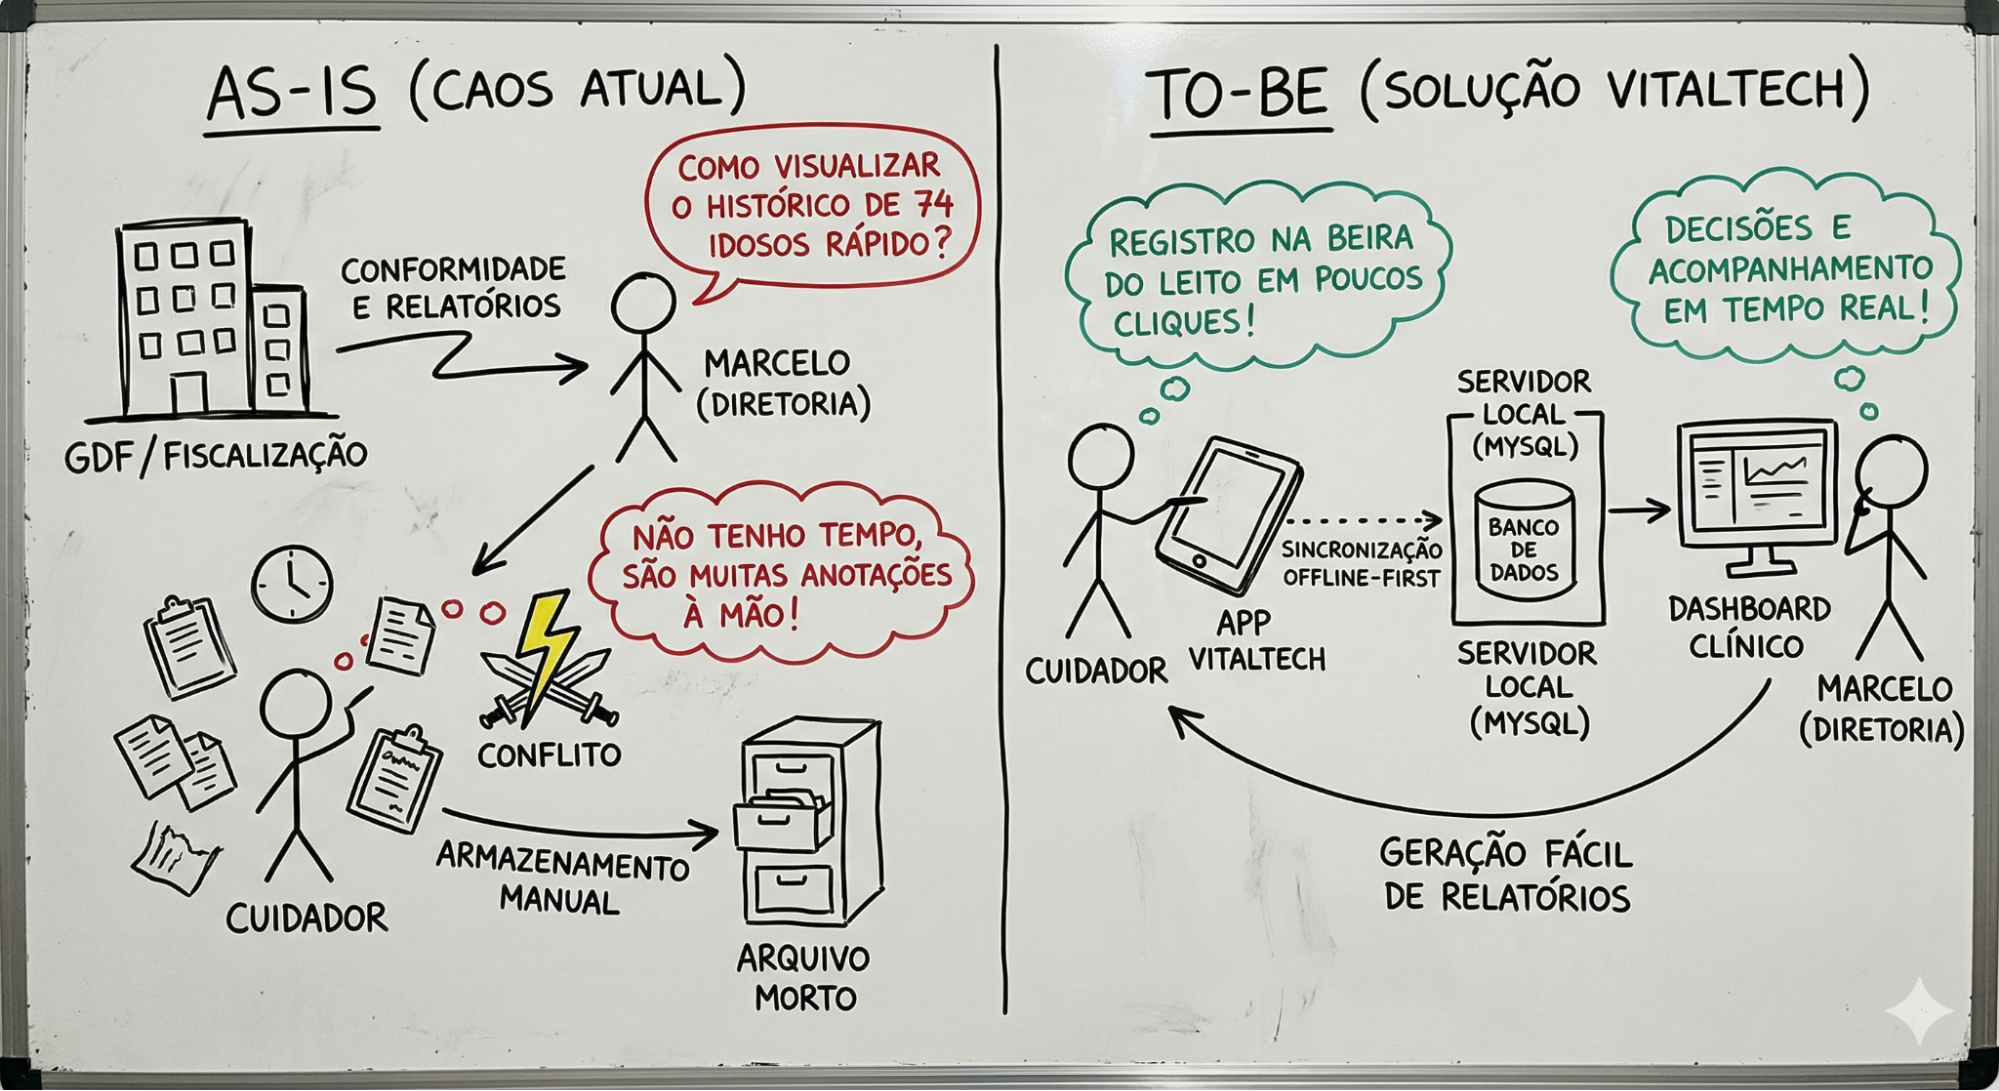 AS-IS (CAOS ATUAL)
COMO VISUALIZAR
O HISTÓRICO DE 74
IDOSOS RÁPIDO?
CONFORMIDADE
E RELATÓRIOS
MARCELO
(DIRETORIA)
GDF/FISCALIZAÇÃO
NÃO TENHO TEMPO,
SÃO MUITAS ANOTAÇÕES
À MÃO!
CONFLITO
ARMAZENAMENTO
MANUAL
CUIDADOR
ARQUIVO
MORTO
TO-BE (SOLUÇÃO VITALTECH)
REGISTRO NA BEIRA
DO LEITO EM POUCOS
CLIQUES!
DECISÕES E
ACOMPANHAMENTO
EM TEMPO REAL!
SERVIDOR
LOCAL
(MYSQL)
BANCO
DE
DADOS
SINCRONIZAÇÃO
OFFLINE-FIRST
CUIDADOR
APP
VITALTECH
SERVIDOR
LOCAL
(MYSQL)
DASHBOARD
CLÍNICO
MARCELO
(DIRETORIA)
GERAÇÃO FÁCIL
DE RELATÓRIOS